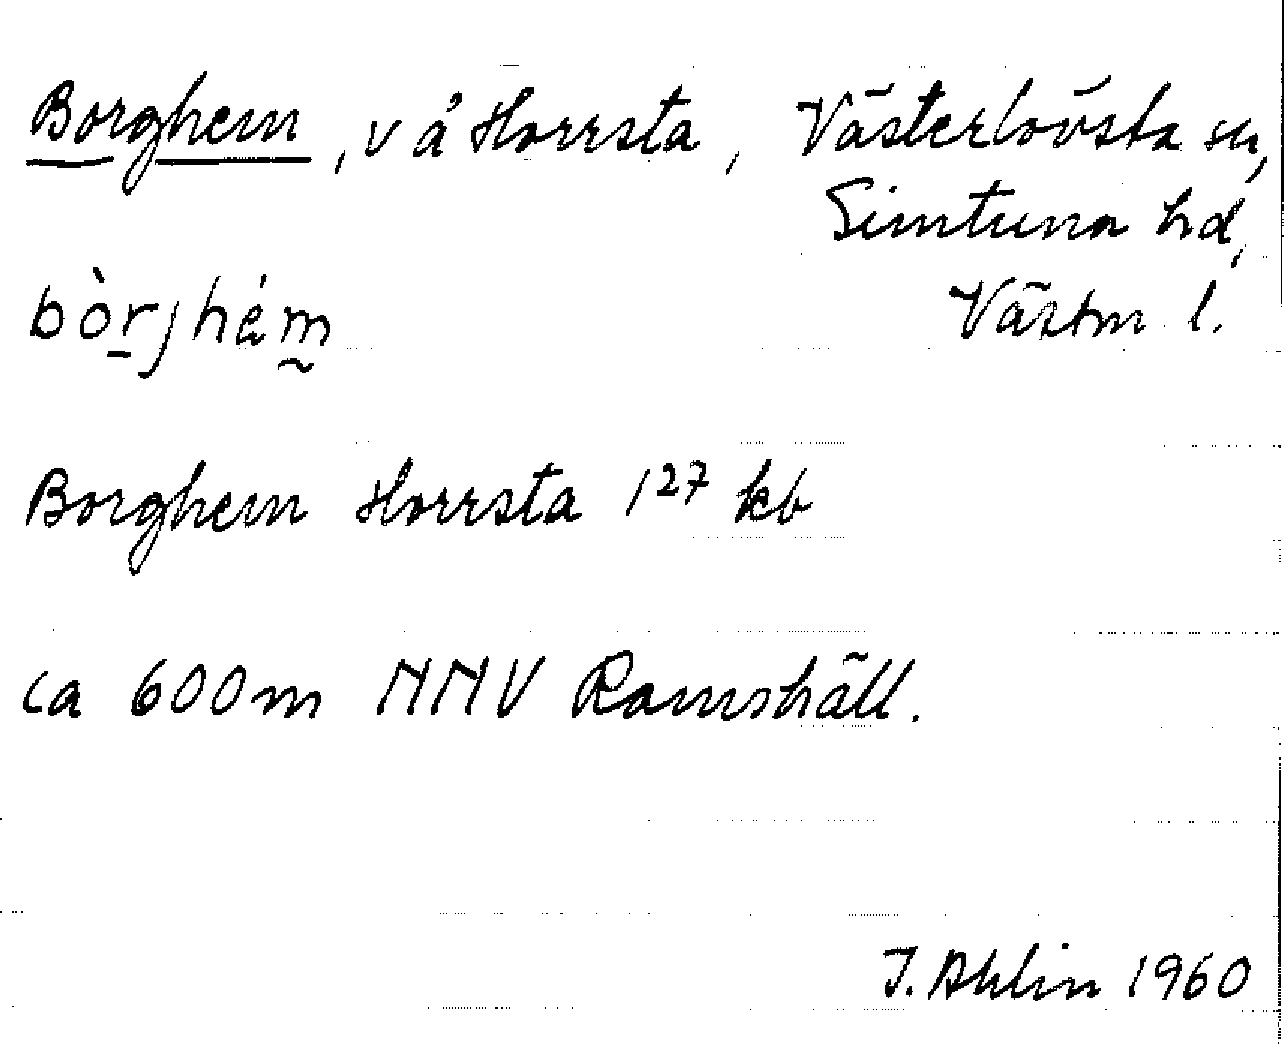 Borghem, v å Horrsta, Västerlövsta sn,
Simtuna hd,
bòrjhém Västm l.
Borghem Horrsta 1²⁷ kb
ca 600m NNV Ramshäll.
J. Ahlin 1960